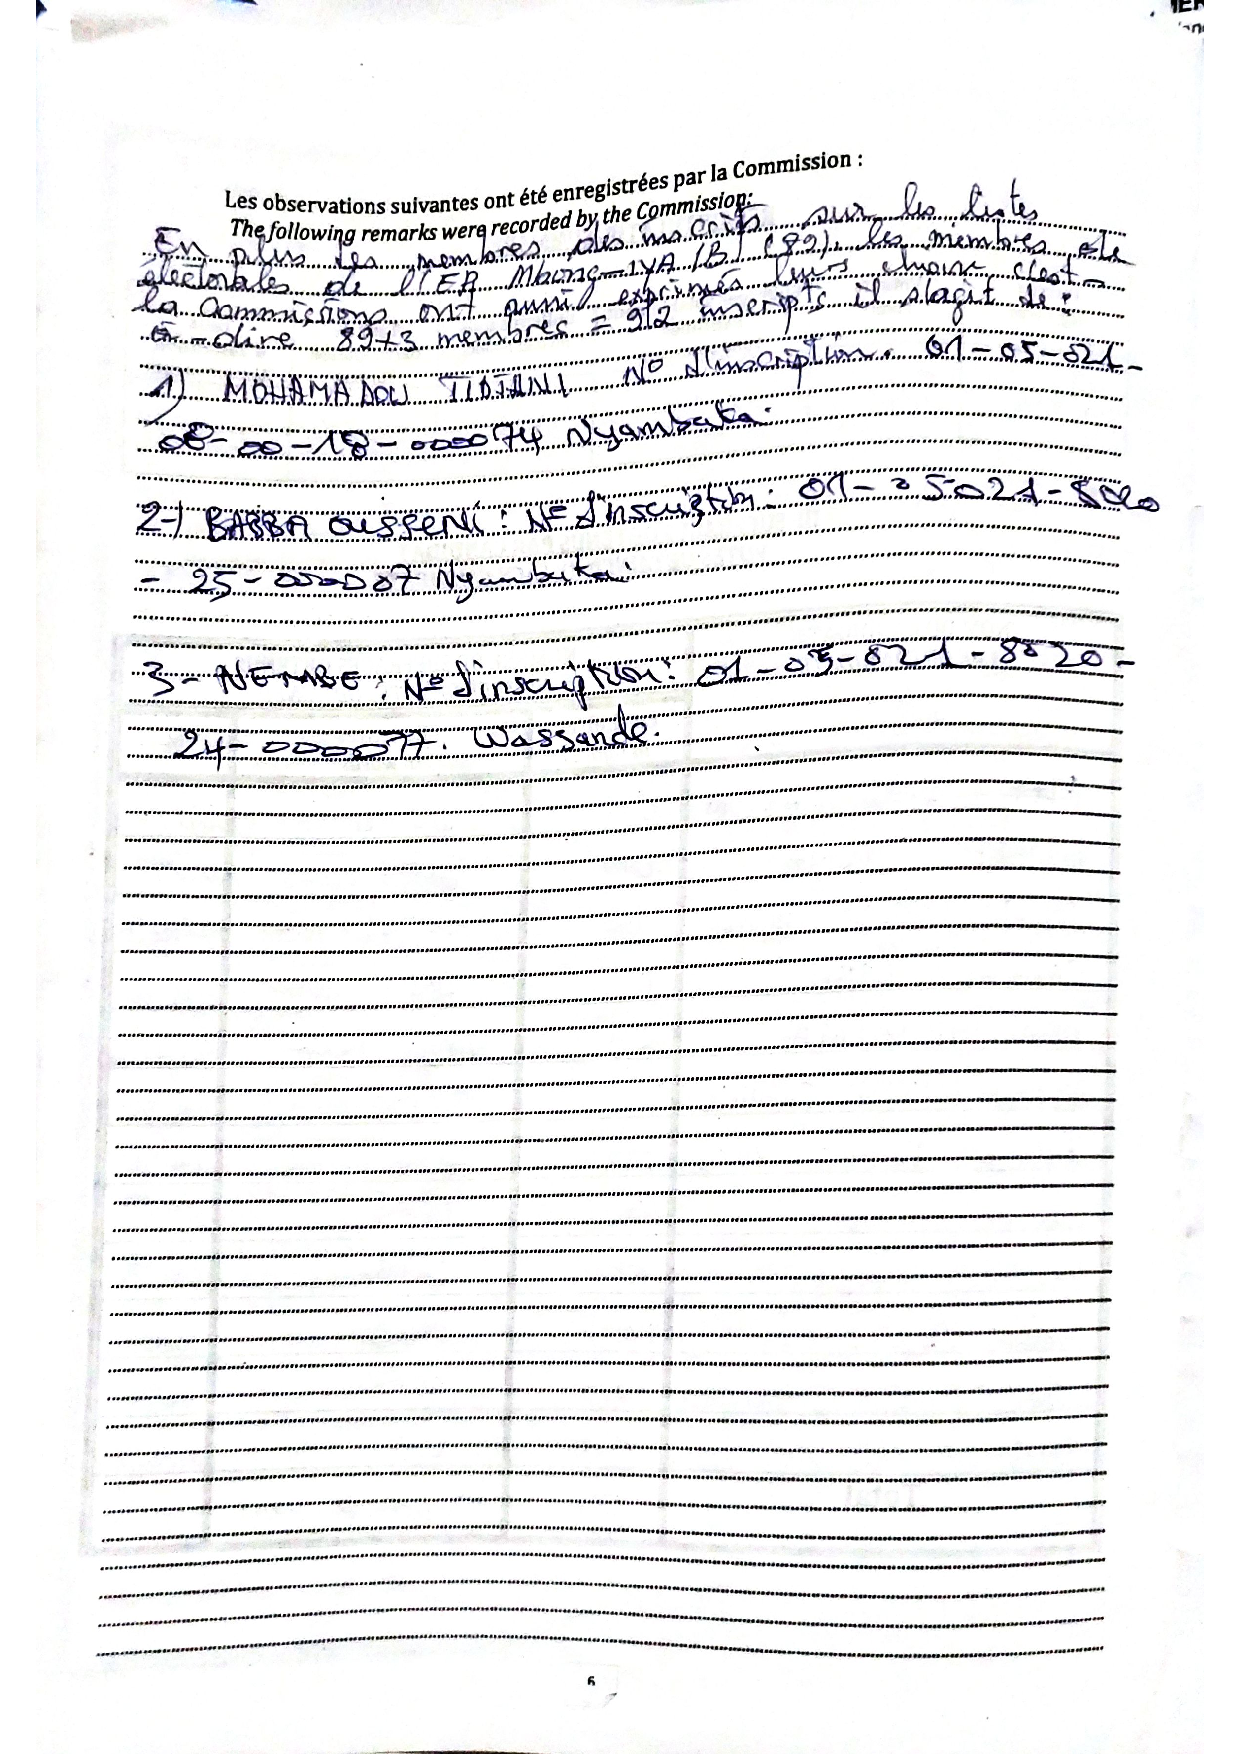 Les observations suivantes ont été enregistrées par la Commission :
The following remarks were recorded by the Commission:
En plus des membres des inscrits sur les listes
électorales de l'IEA Mbong-IYA IB (89), les membres de
la Commissions ont aussi exprimés leurs choix c'est-
à-dire 89+3 membres = 92 inscripts il s'agit de :
1) MOHAMADOU TIDJANI N° d'inscription. 01-05-021-
08-00-18-000074 Nyambaka.
2-) BABBA OUSSENI : N° d'inscription : 01-05-021-
- 25-000007 Nyambaka.
3- NEMBE : N° d'inscription : 01-05-021-8020-
24-000077. Wassande.
6